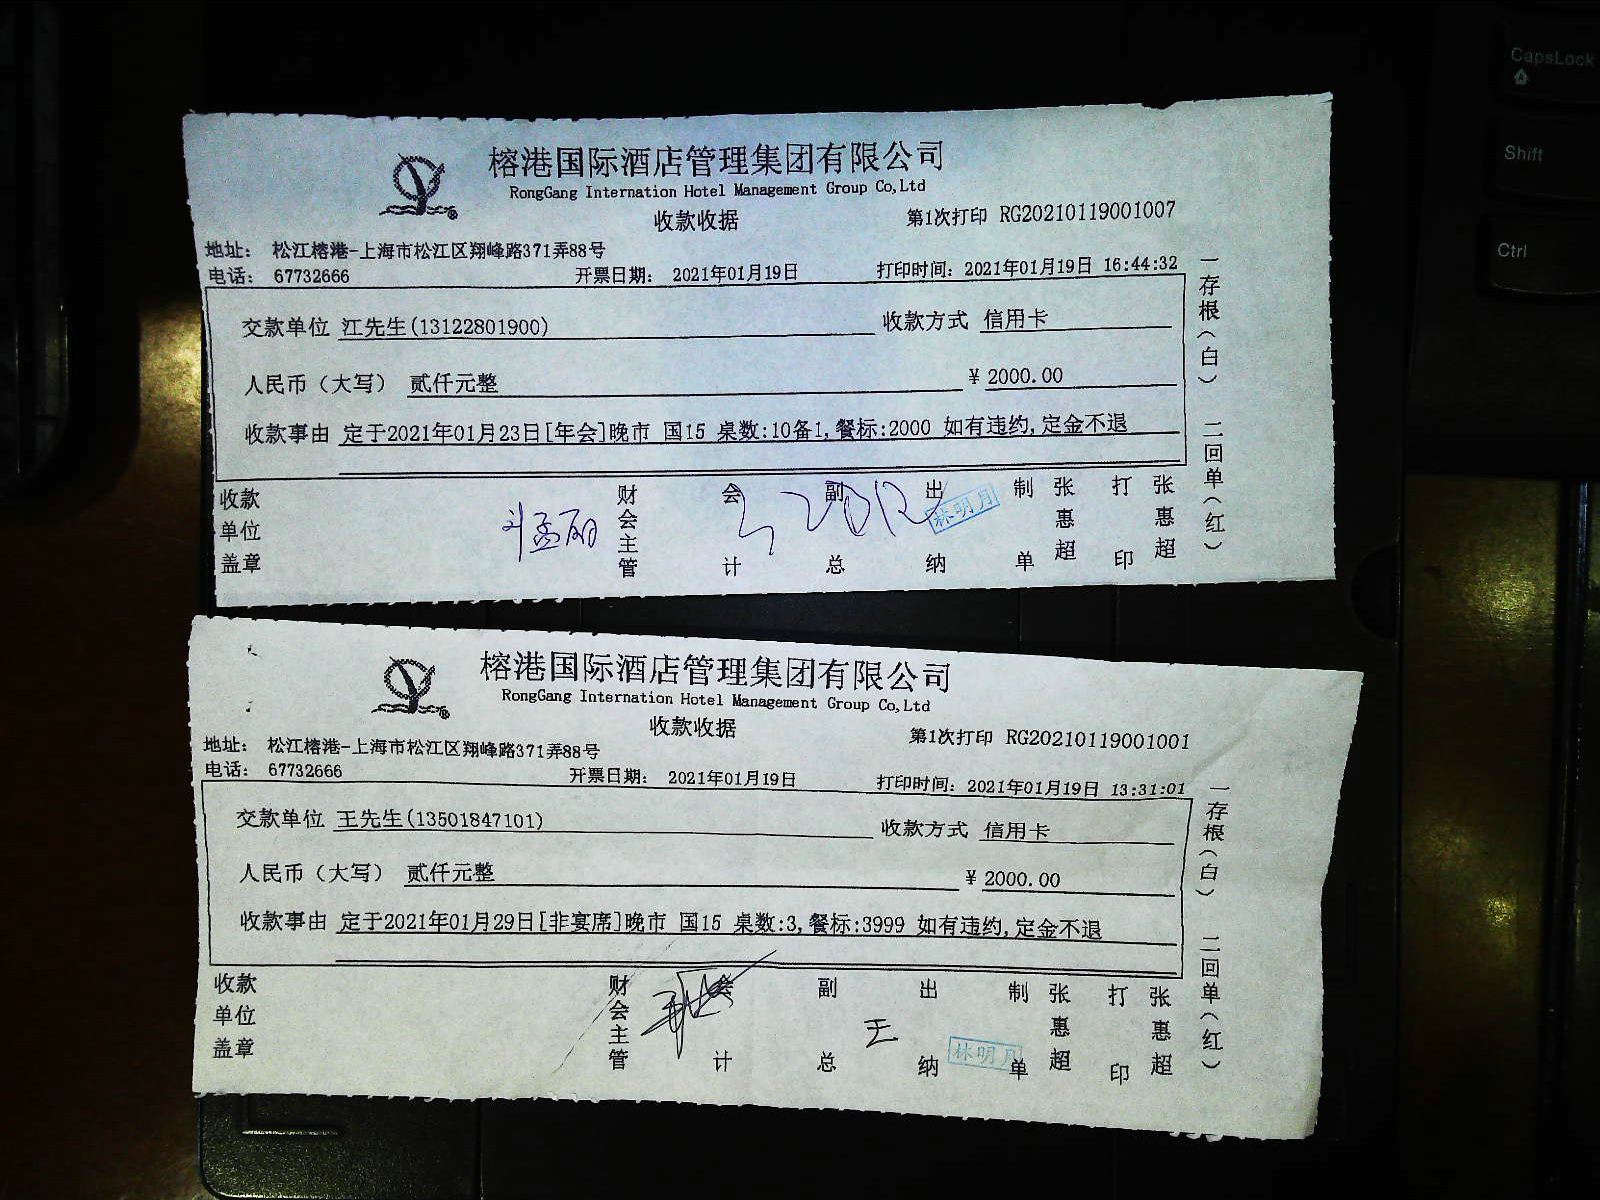 榕港国际酒店管理集团有限公司
RongGang Internation Hotel Management Group Co,Ltd
收款收据
第1次打印 RG20210119001007
地址： 松江榕港-上海市松江区翔峰路371弄88号
电话： 67732666 开票日期： 2021年01月19日 打印时间：2021年01月19日 16:44:32
交款单位 江先生(13122801900) 收款方式 信用卡
人民币（大写） 贰仟元整 ¥ 2000.00
收款事由 定于2021年01月23日[年会]晚市 国15 桌数:10备1,餐标:2000 如有违约,定金不退
一存根（白） 二回单（红）
收款单位盖章 财会主管 会计 副总 出纳 林明月 制单 张惠超 打印 张惠超
榕港国际酒店管理集团有限公司
RongGang Internation Hotel Management Group Co,Ltd
收款收据
第1次打印 RG20210119001001
地址： 松江榕港-上海市松江区翔峰路371弄88号
电话： 67732666 开票日期： 2021年01月19日 打印时间：2021年01月19日 13:31:01
交款单位 王先生(13501847101) 收款方式 信用卡
人民币（大写） 贰仟元整 ¥ 2000.00
收款事由 定于2021年01月29日[非宴席]晚市 国15 桌数:3,餐标:3999 如有违约,定金不退
一存根（白） 二回单（红）
收款单位盖章 财会主管 会计 副总 王 出纳 林明月 制单 张惠超 打印 张惠超
CapsLock
A
Shift
Ctrl